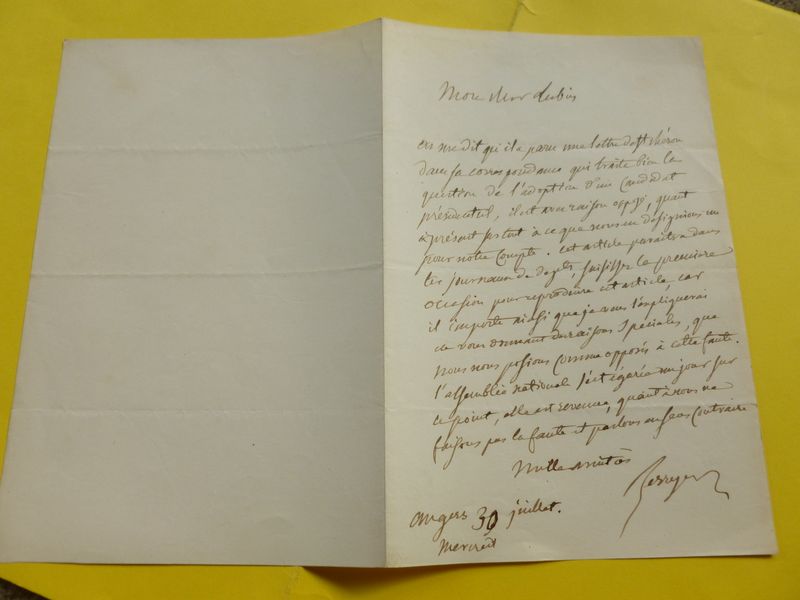 Mon cher Dubois
on me dit qu'il a paru une lettre de St chéron
dans sa correspondance qui traite bien la
question de l'adoption d'un candidat
présidentiel, il est avec raison opposé, quant
à présent surtout à ce que nous en désignions un
pour notre compte. cet article paraîtra dans
les journaux de dépts, saisissez la première
occasion pour reproduire cet article, car
il importe ainsi que je vous l'expliquerai
en vous donnant des raisons spéciales, que
nous nous posions comme opposés à cette faute.
l'assemblée national s'est égarée un jour sur
ce point, elle est revenue, quant à nous ne
faisons pas la faute et parlons en sens contraire
Mille amitiés
Berryer
angers 30 juillet.
mercredi